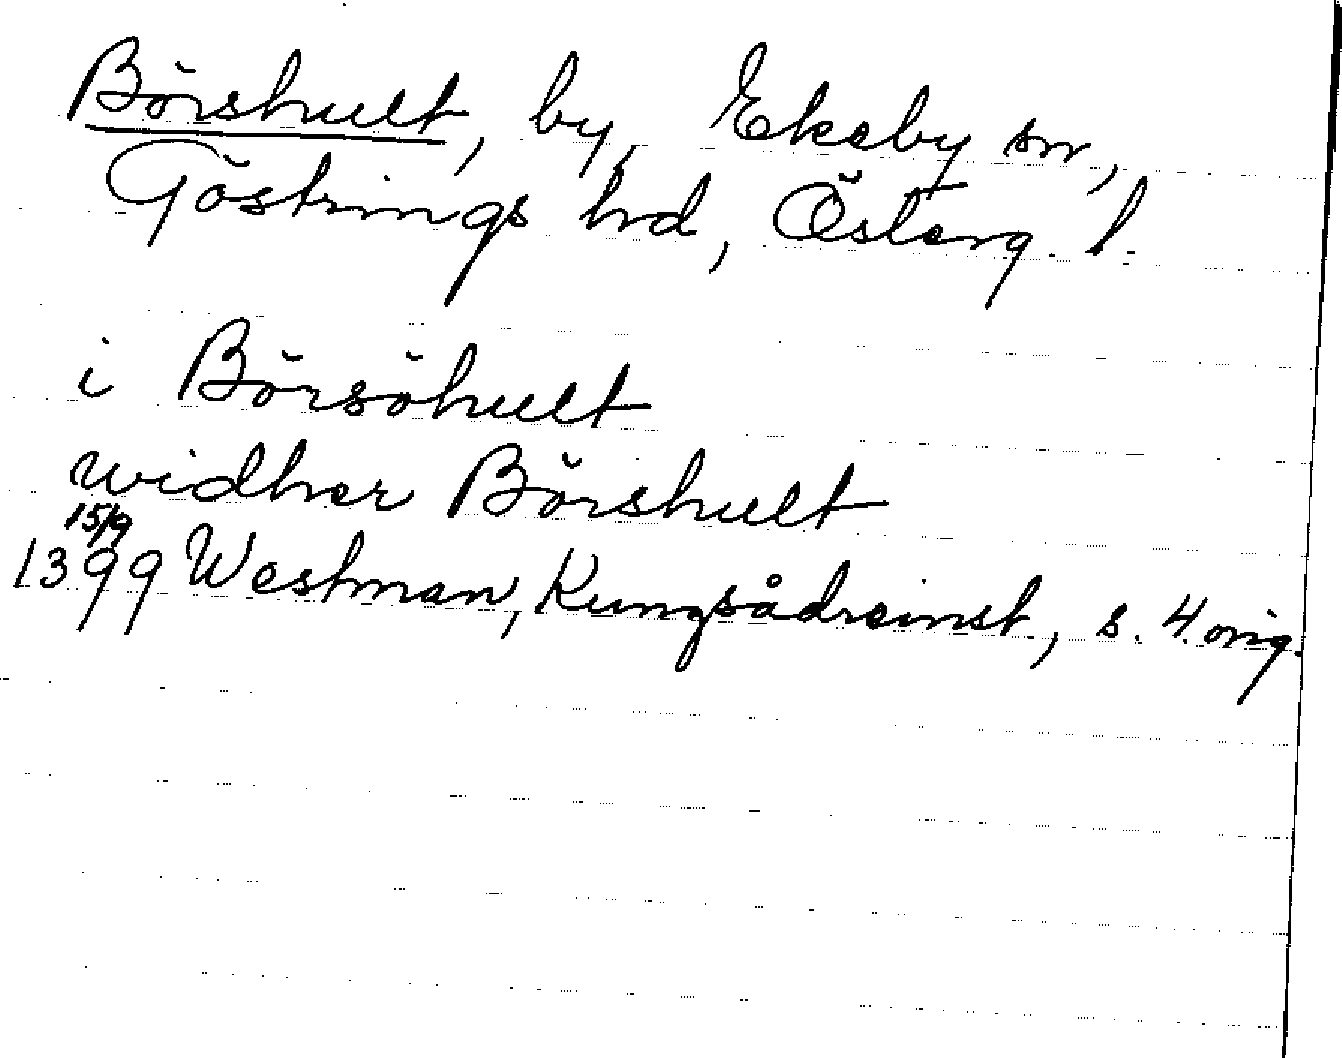 Börshult, by, Ekeby sn,
Göstrings hd, Österg. l.
i Börsöhult
widher Börshult
15/9
1399 Westman, Kungsådreinst., s. 4. orig.